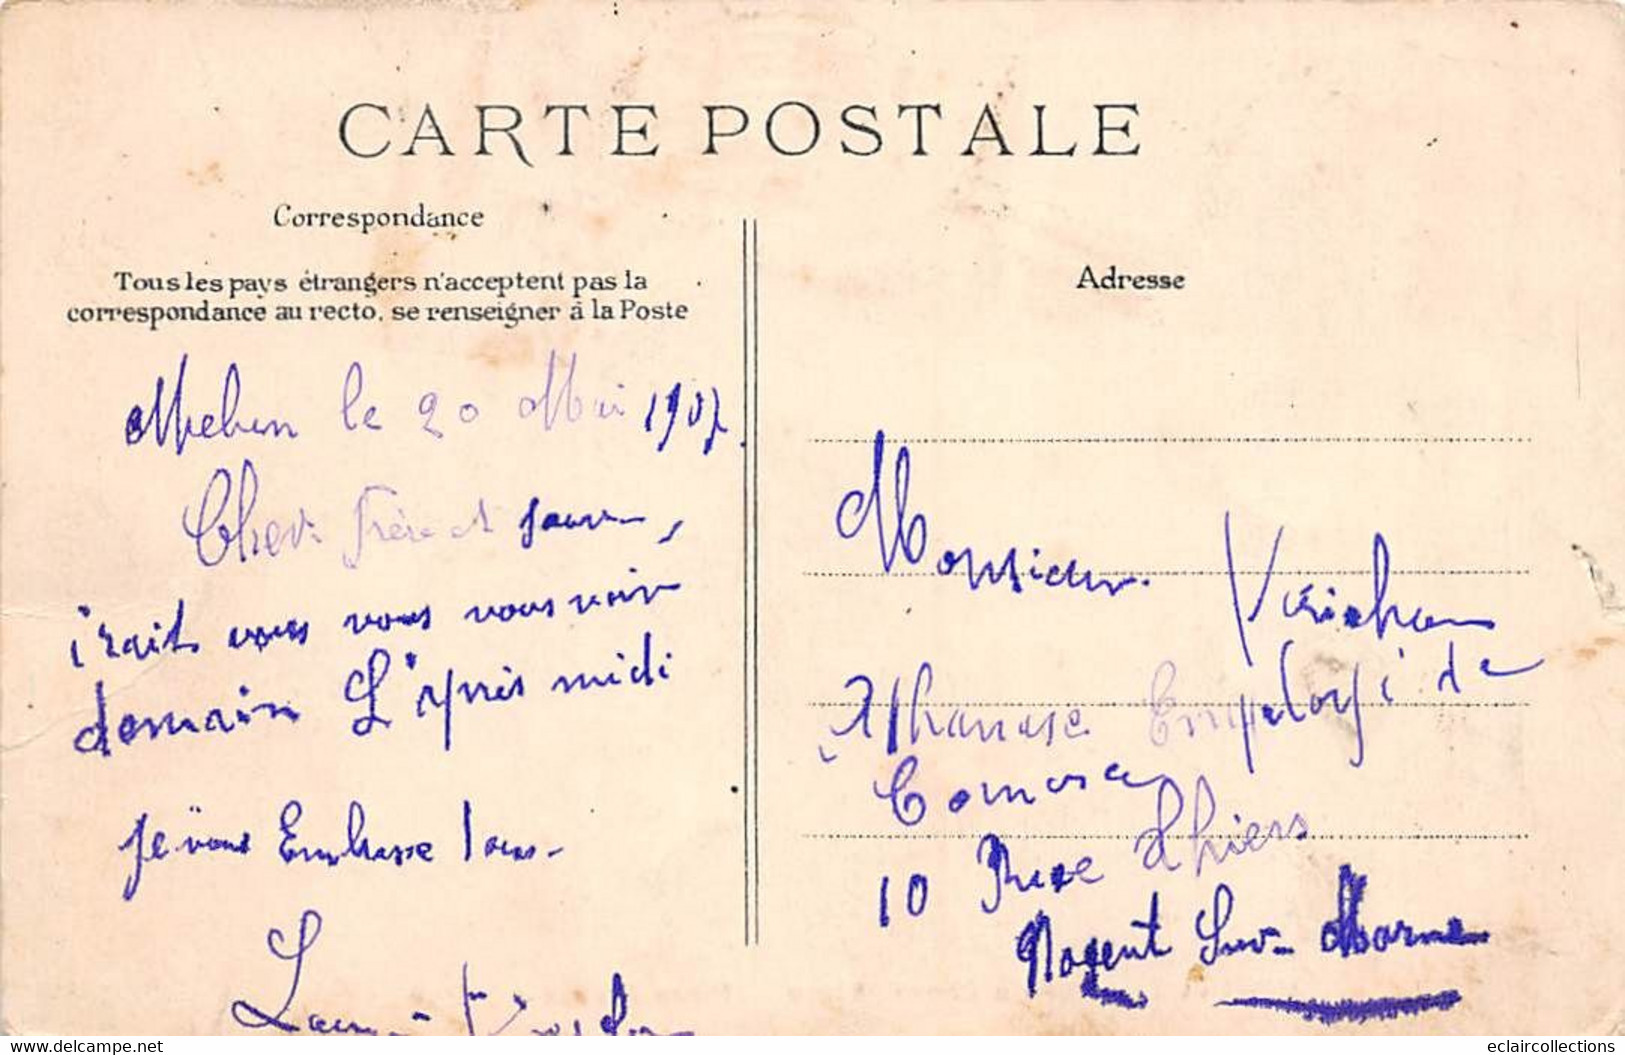 CARTE POSTALE
Correspondance
Tous les pays étrangers n'acceptent pas la
correspondance au recto, se renseigner à la Poste
Melun le 20 Mai 1907.
Cher frère et sœur,
irait vous vous vous voir
domain L'après midi
Je vous Embrasse tous
Adresse
Monsieur
Athanase Employé de
10 Rue Thiers
Nogent Sur Marne
www.delcampe.net
eclaircollections